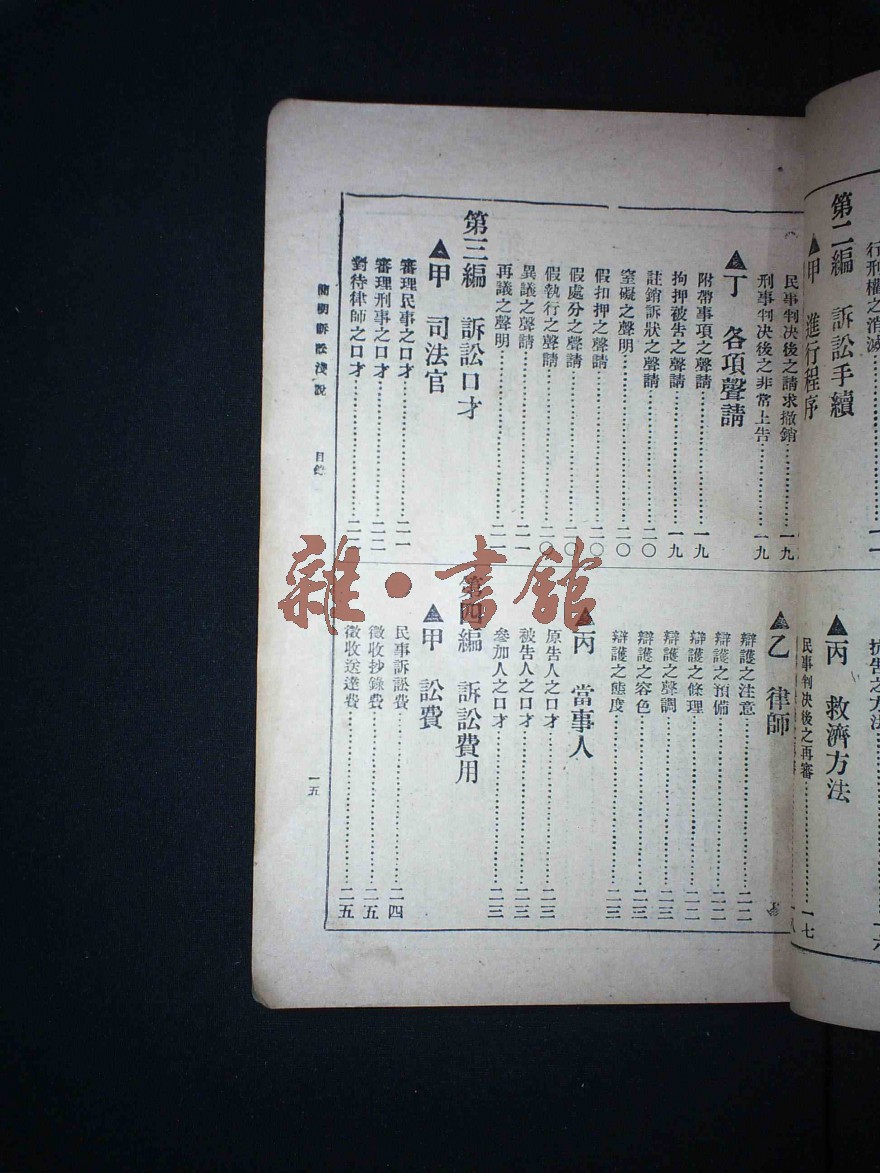 第二編 訴訟手續
▲甲 進行程序
行刑權之消滅
▲丙 救濟方法
民事判決後之再審……一七
民事判決後之請求撤銷……一九
刑事判決後之非常上告……一九
▲丁 各項聲請
附帶事項之聲請……一九
拘押被告之聲請……一九
註銷訴狀之聲請……二〇
窒礙之聲明……二〇
假扣押之聲請……二〇
假處分之聲請……二〇
假執行之聲請……二〇
異議之聲請……二一
再議之聲明……二一
第三編 訴訟口才
▲甲 司法官
審理民事之口才……二一
審理刑事之口才……二二
對待律師之口才……二二
▲乙 律師
辯護之注意……二二
辯護之預備……二二
辯護之條理……二二
辯護之聲調……二三
辯護之容色……二三
辯護之態度……二三
▲丙 當事人
原告人之口才……二三
被告人之口才……二三
參加人之口才……二三
第四編 訴訟費用
▲甲 訟費
民事訴訟費……二四
徵收抄錄費……二五
徵收送達費……二五
簡明訴訟淺說 目錄
一五
雜·書館